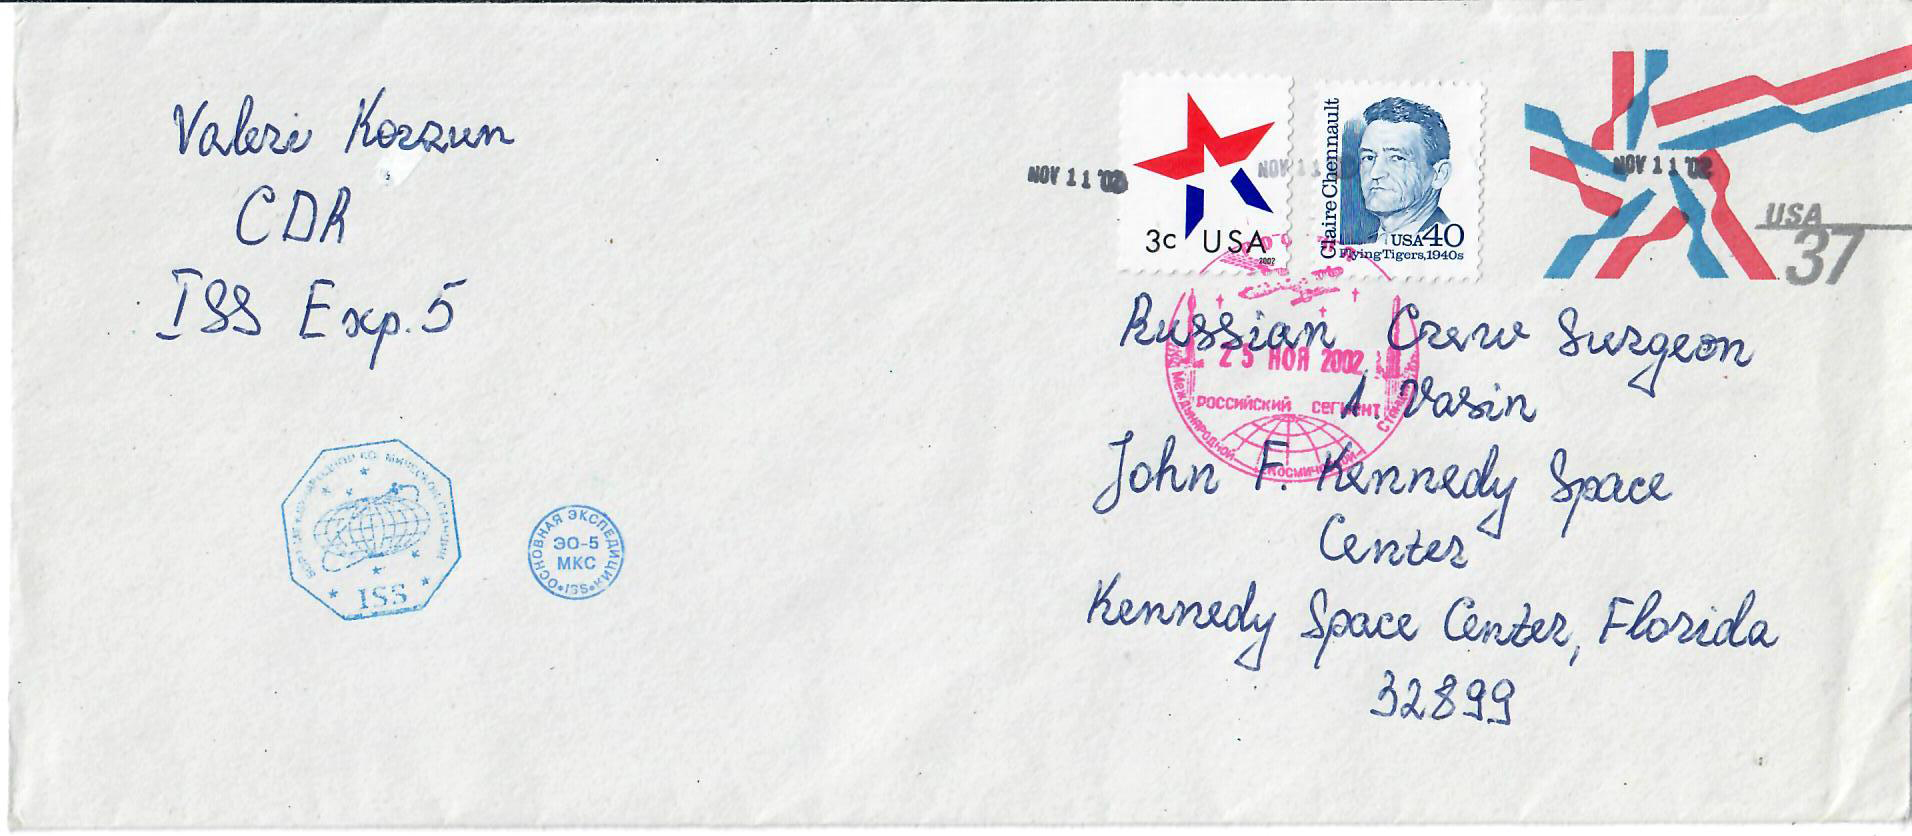 Valeri Korzun
CDR
ISS Exp. 5
NOV 11 '02
3c USA
2002
NOV 11
Claire Chennault
USA 40
Flying Tigers, 1940s
NOV 11 '02
USA
37
Russian Crew Surgeon
25 НОЯ 2002
A. Vasin
РОССИЙСКИЙ СЕГМЕНТ
МЕЖДУНАРОДНОЙ КОСМИЧЕСКОЙ
John F. Kennedy Space
Center
Kennedy Space Center, Florida
32899
ISS
ОСНОВНАЯ ЭКСПЕДИЦИЯ
ЭО-5
МКС
•ISS•